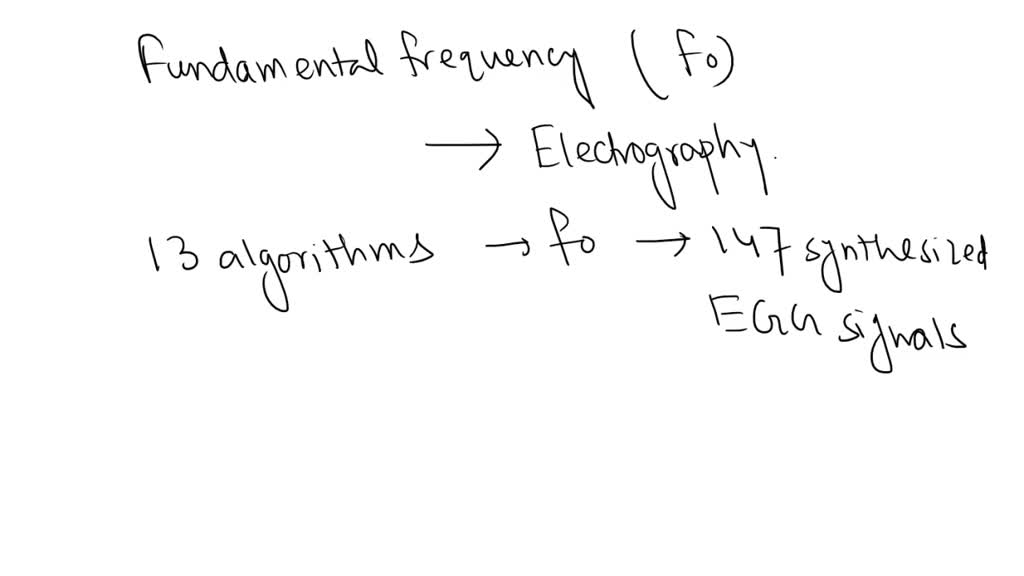 Fundamental frequency (fo)
→ Electrography.
13 algorithms → fo → 147 synthesized
EGG signals